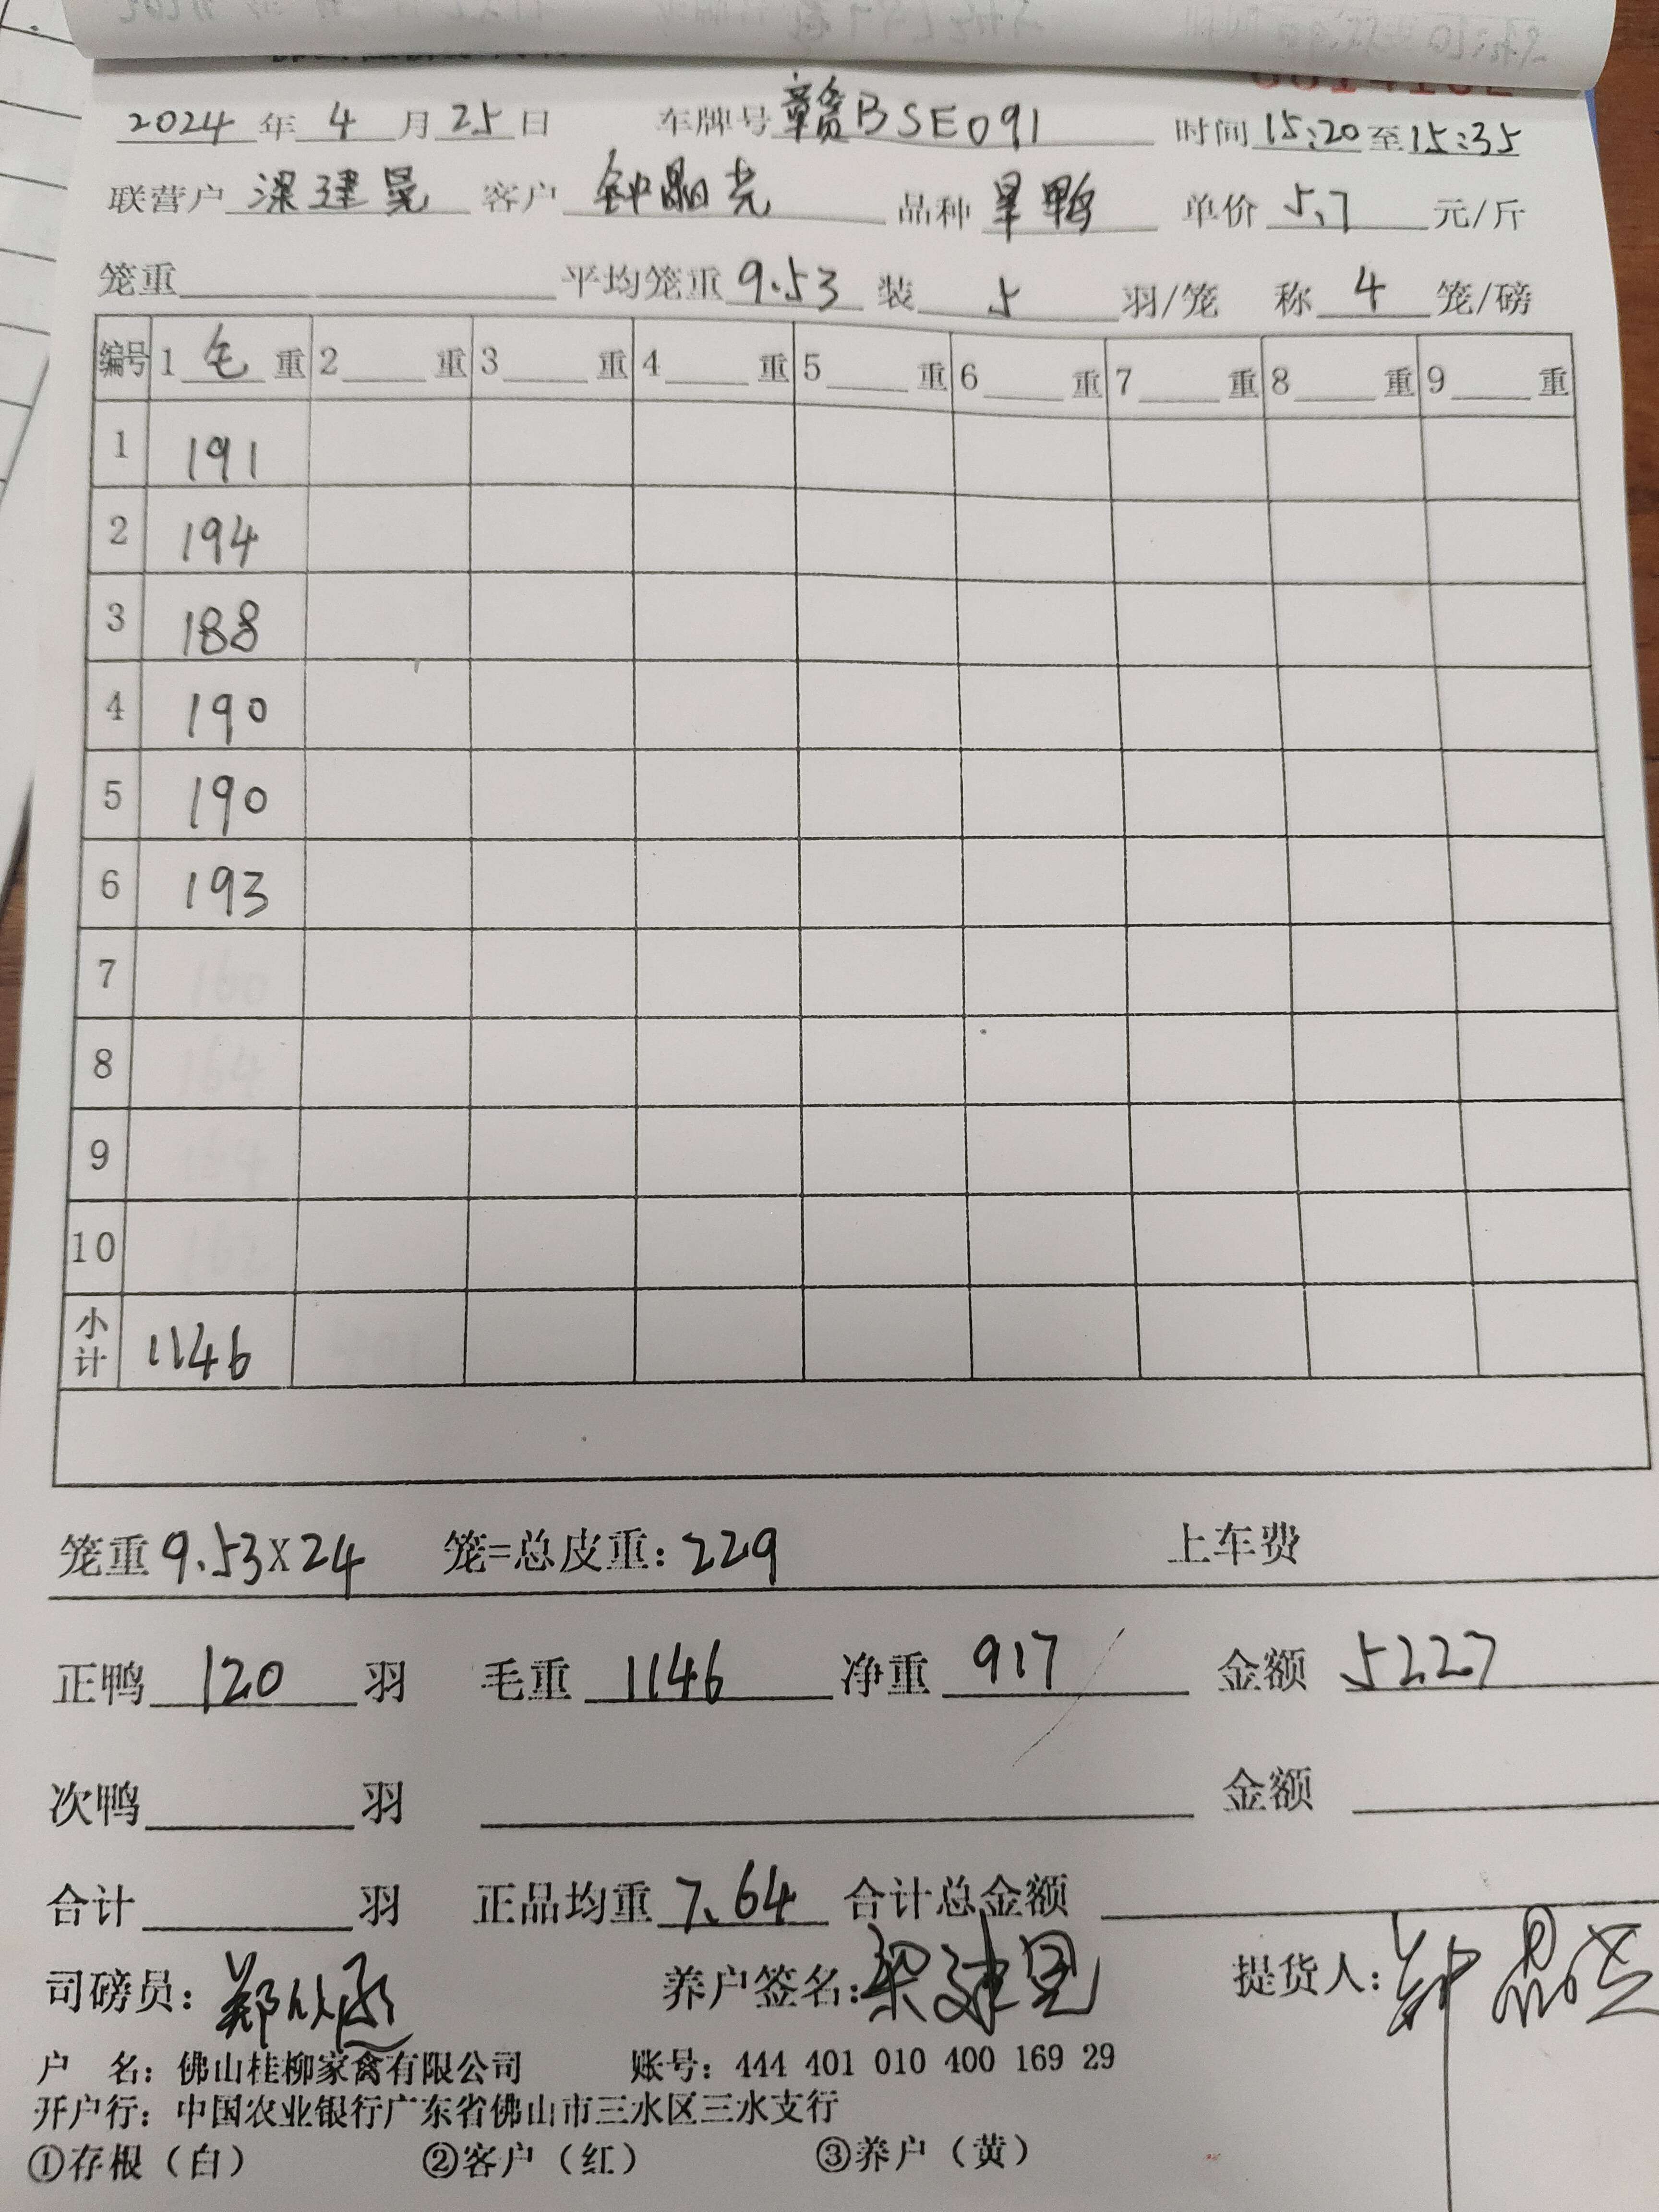 2024年4月25日 车牌号赣BSE091 时间15:20至15:35
联营户梁建晃 客户钟晶光 品种旱鸭 单价5.7元/斤
笼重 平均笼重9.53 装5羽/笼 称4笼/磅
编号 1毛重 2重 3重 4重 5重 6重 7重 8重 9重
1 191
2 194
3 188
4 190
5 190
6 193
7
8
9
10
小计 1146
笼重9.53X24 笼=总皮重:229 上车费
正鸭120羽 毛重1146 净重917 金额5227
次鸭羽 金额
合计羽 正品均重7.64 合计总金额
司磅员: 养户签名:梁建晃 提货人:钟晶光
户 名: 佛山桂柳家禽有限公司 账号: 444 401 010 400 169 29
开户行: 中国农业银行广东省佛山市三水区三水支行
①存根（白） ②客户（红） ③养户（黄）